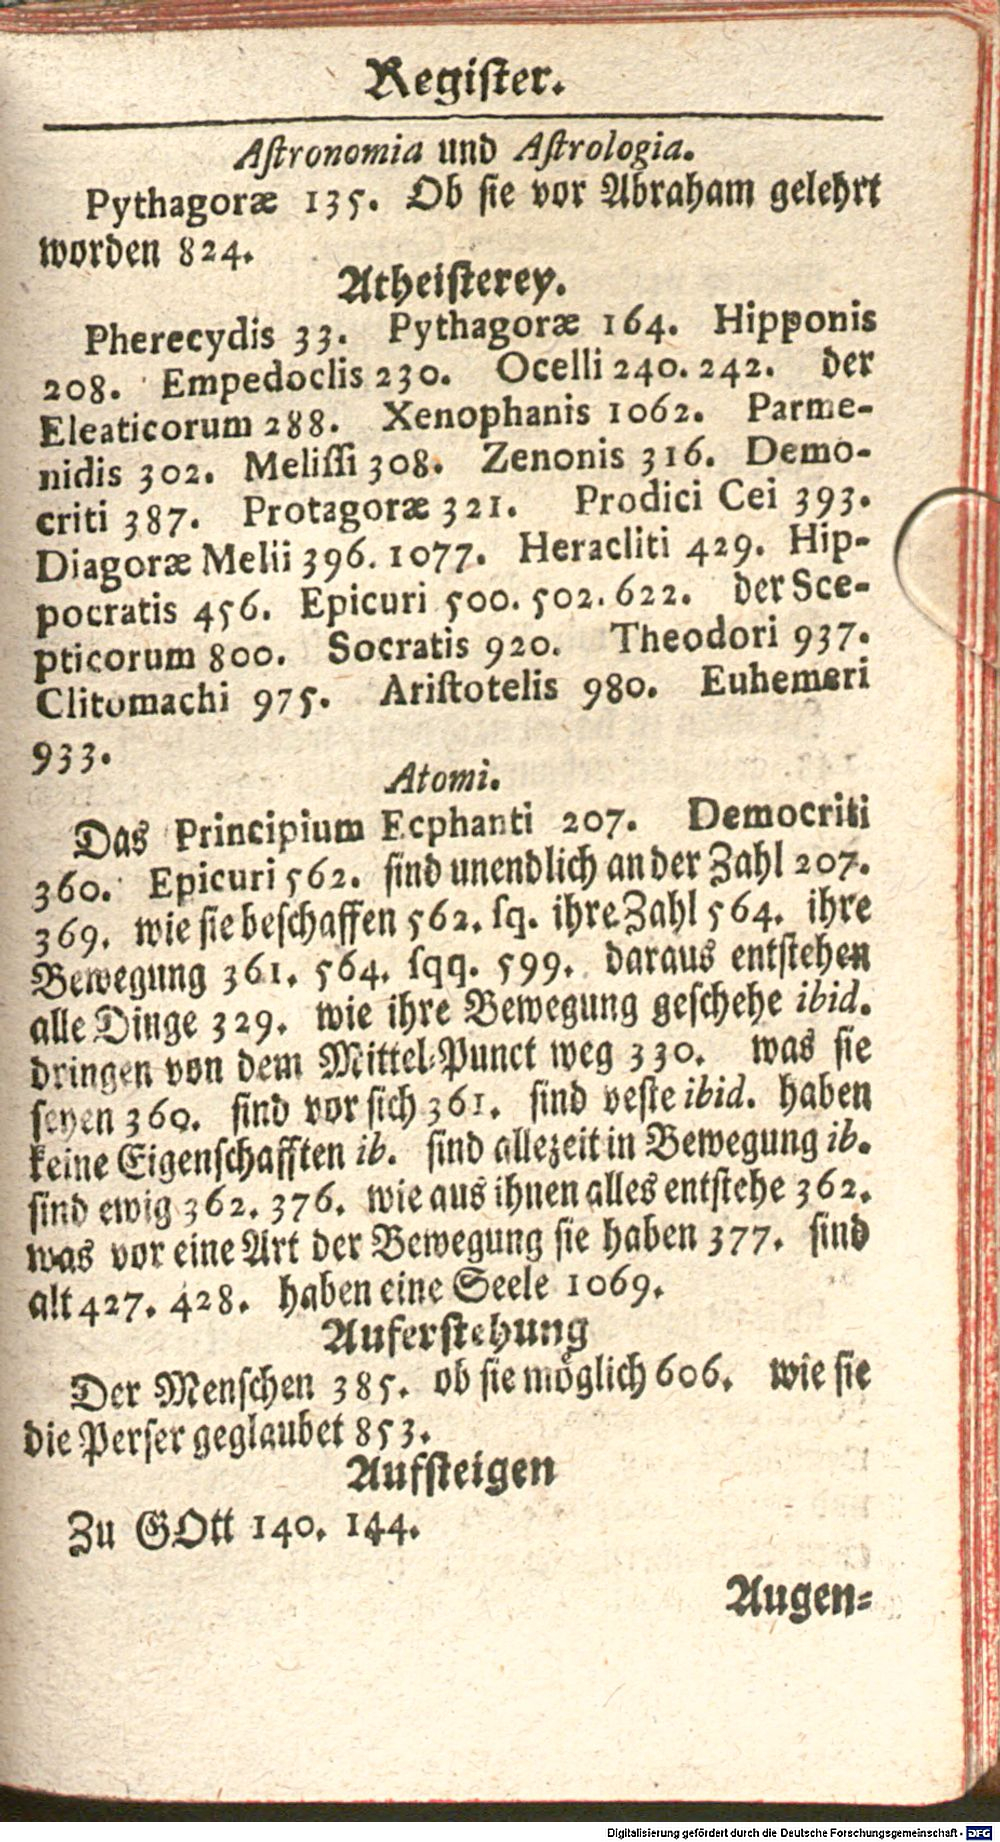 Regiſter.
Aſtronomia und Aſtrologia.
Pythagoræ 135. Ob ſie vor Abraham gelehrt
worden 824.
Atheiſterey.
Pherecydis 33. Pythagoræ 164. Hipponis
208. Empedoclis 230. Ocelli 240. 242. der
Eleaticorum 288. Xenophanis 1062. Parme-
nidis 302. Meliſſi 308. Zenonis 316. Demo-
criti 387. Protagoræ 321. Prodici Cei 393.
Diagoræ Melii 396. 1077. Heracliti 429. Hip-
pocratis 456. Epicuri 500. 502. 622. der Sce-
pticorum 800. Socratis 920. Theodori 937.
Clitomachi 975. Ariſtotelis 980. Euhemeri
933.
Atomi.
Das Principium Ecphanti 207. Democriti
360. Epicuri 562. ſind unendlich an der Zahl 207.
369. wie ſie beſchaffen 562. ſq. ihre Zahl 564. ihre
Bewegung 361. 564. ſqq. 599. daraus entſtehen
alle Dinge 329. wie ihre Bewegung geſchehe ibid.
dringen von dem Mittel-Punct weg 330. was ſie
ſeyen 360. ſind vor ſich 361. ſind veſte ibid. haben
keine Eigenſchafften ib. ſind allezeit in Bewegung ib.
ſind ewig 362. 376. wie aus ihnen alles entſtehe 362.
was vor eine Art der Bewegung ſie haben 377. ſind
alt 427. 428. haben eine Seele 1069.
Auferſtehung
Der Menſchen 385. ob ſie möglich 606. wie ſie
die Perſer geglaubet 853.
Aufſteigen
Zu GOtt 140. 144.
Augen-
Digitalisierung gefördert durch die Deutsche Forschungsgemeinschaft - DFG